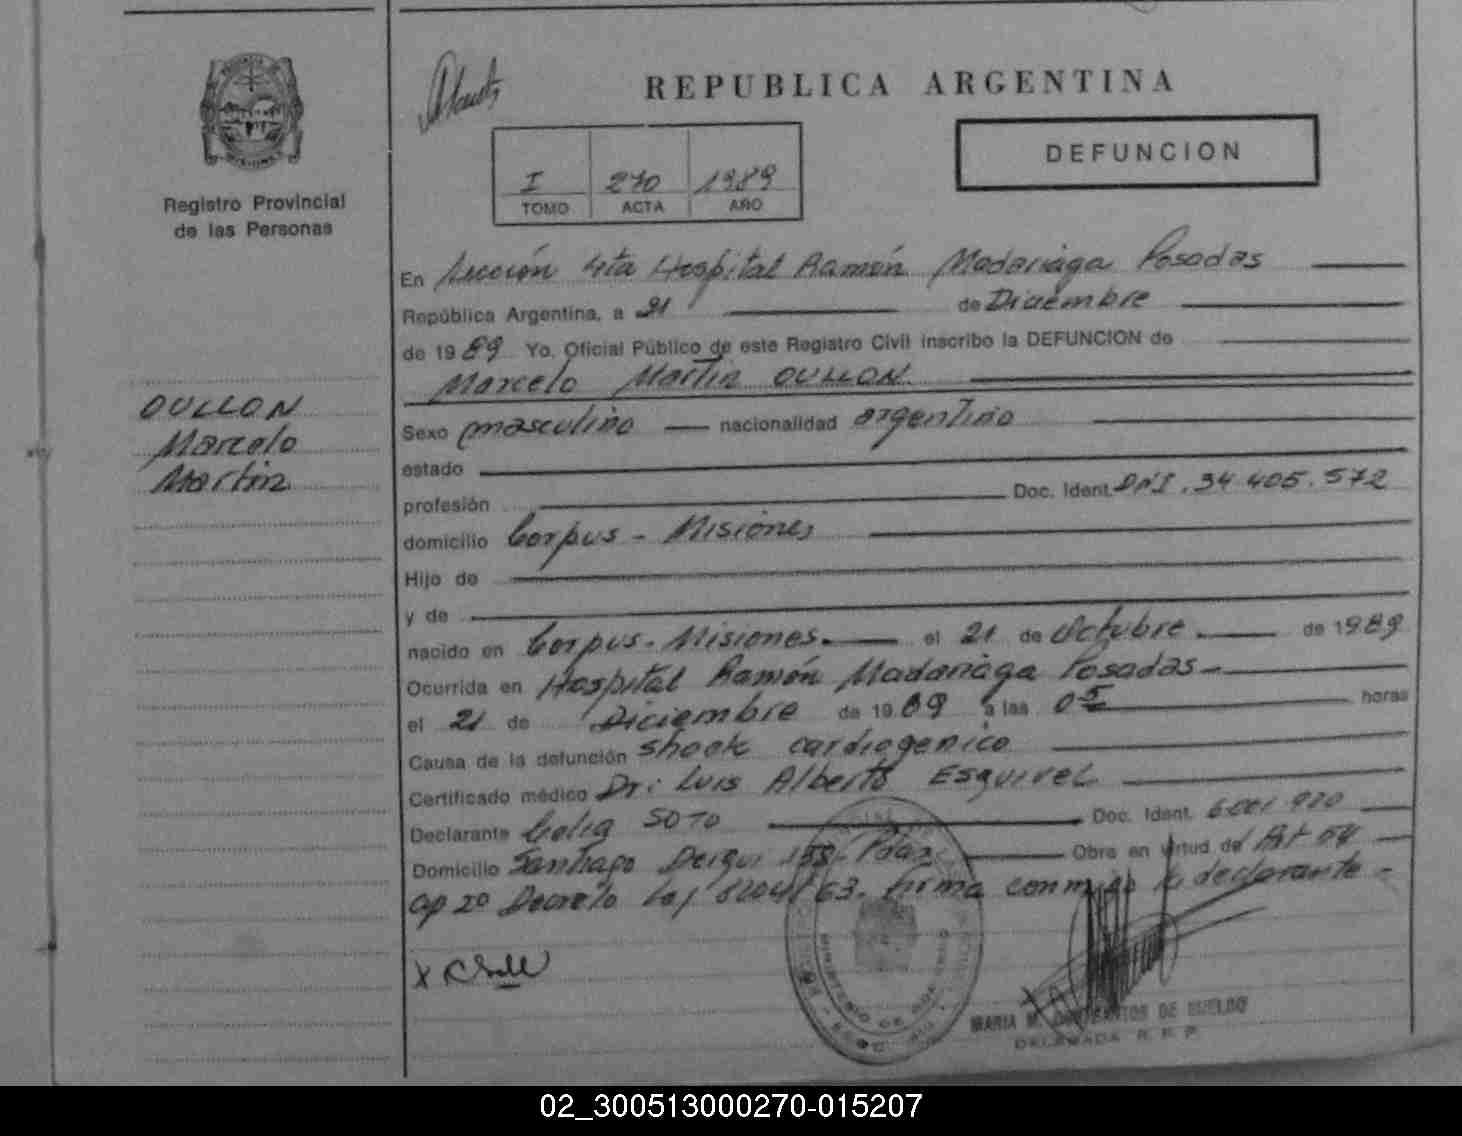 REPUBLICA ARGENTINA
DEFUNCION
I 270 1989
TOMO ACTA AÑO
Registro Provincial
de las Personas
OULLON
Marcelo
Martin
En Sección 4ta Hospital Ramón Madariaga Posadas
República Argentina, a 21 de Diciembre
de 1989 Yo, Oficial Público de este Registro Civil inscribo la DEFUNCION de
Marcelo Martin OULLON
Sexo masculino nacionalidad argentino
estado
profesión Doc. Ident. DNI. 34.405.572
domicilio Corpus - Misiones
Hijo de
y de
nacido en Corpus - Misiones. el 21 de Octubre de 1989
Ocurrida en Hospital Ramón Madariaga Posadas -
el 21 de Diciembre de 1989 a las 05 horas
Causa de la defunción shock cardiogenico
Certificado médico Dr: Luis Alberto Esquivel
Declarante SOTO Doc. Ident. 6.001.920
Domicilio Santiago Derqui 158 - Pdas Obra en virtud del Art 54
ap 2º Decreto Ley 8204/63. Firma conmigo la declarante -
MARIA M. DE SUELDO
DELEGADA R. P. P.
02_300513000270-015207